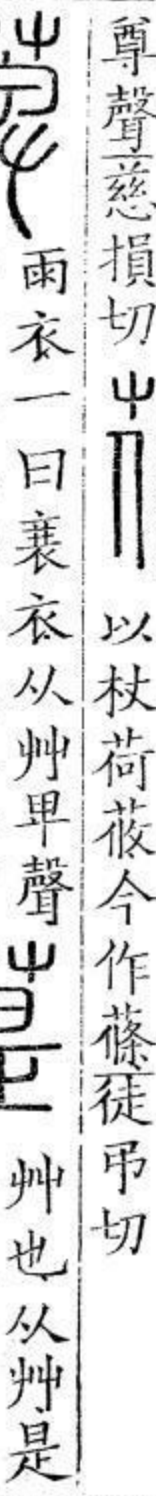 尊聲慈損切 以杖荷莜今作蓧徒弔切
萆 雨衣一曰衰衣从艸卑聲 䓳 艸也从艸是